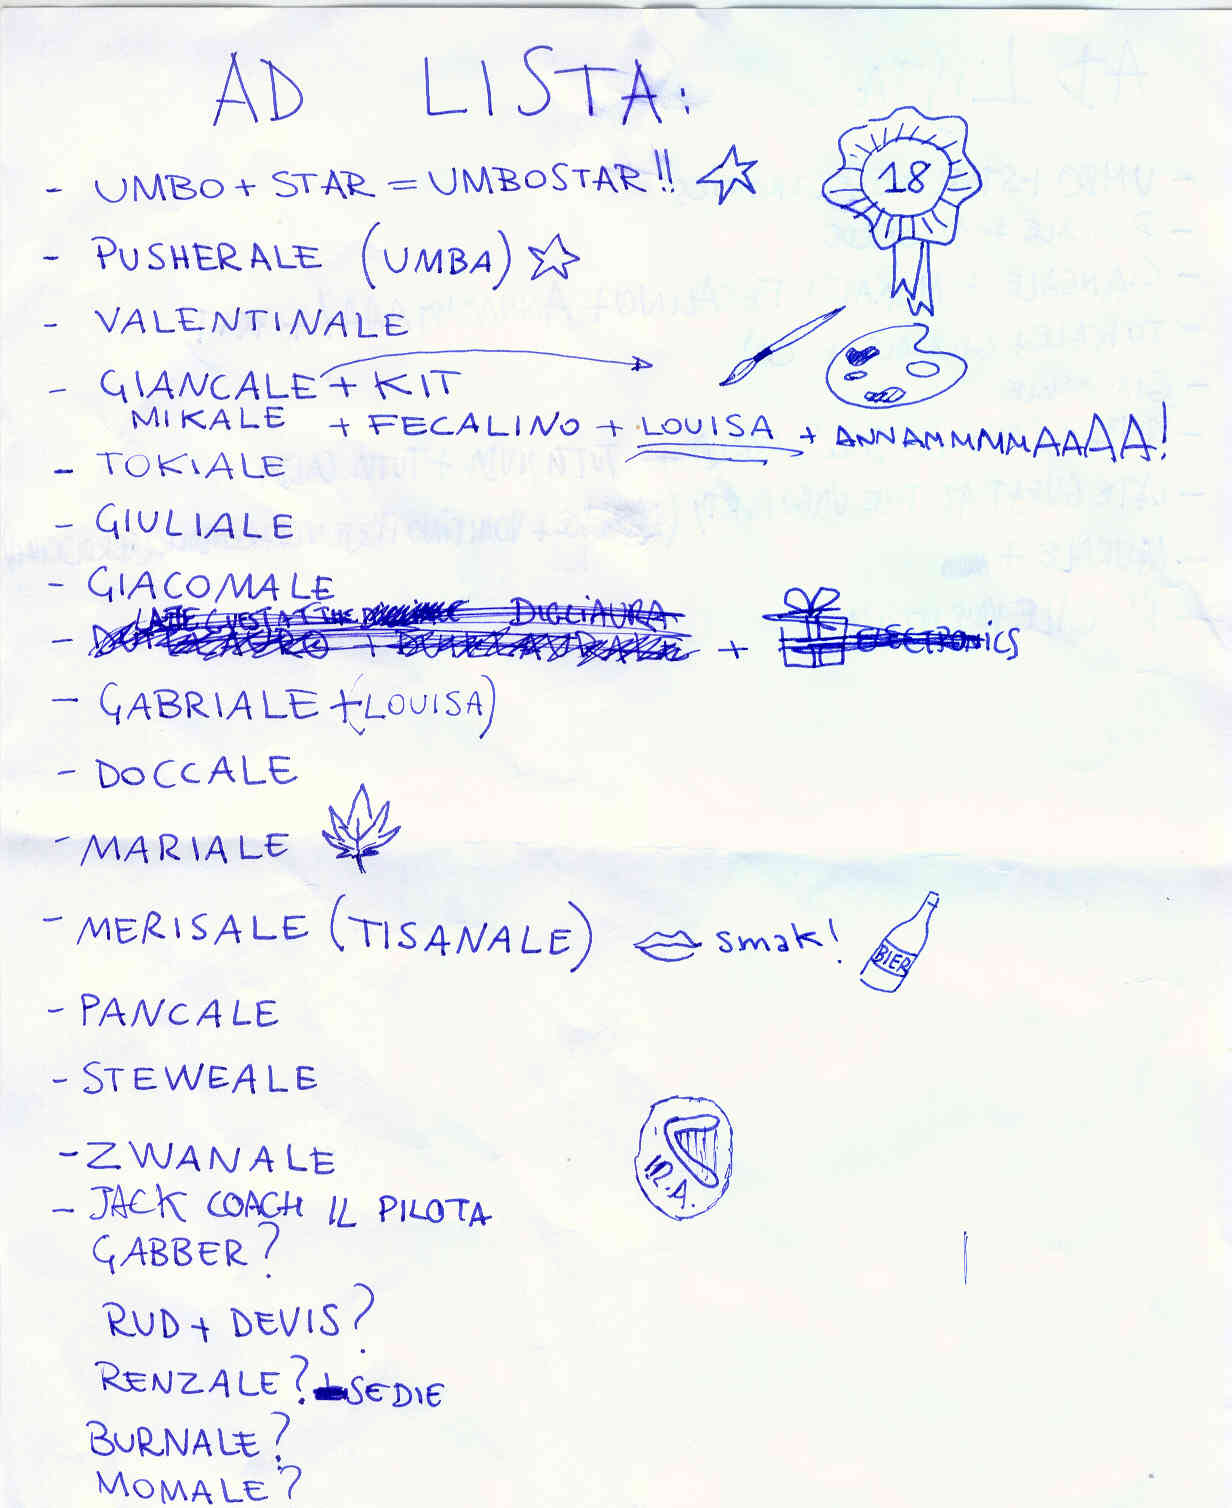 AD LISTA:
- UMBO + STAR = UMBOSTAR!!
18
- PUSHERALE (UMBA)
- VALENTINALE
- GIANCALE + KIT
MIKALE + FECALINO + LOUISA + ANNAMMMMAAAA!
- TOKIALE
- GIULIALE
- GIACOMALE
LATE GUEST AT THE DIGLIAURA
- + + ELECTRONICS
- GABRIALE + (LOUISA)
- DOCCALE
- MARIALE
- MERISALE (TISANALE) smak!
BIER
- PANCALE
- STEWEALE
- ZWANALE
- JACK COACH IL PILOTA
GABBER?
RUD + DEVIS?
RENZALE? + SEDIE
BURNALE?
MOMALE?